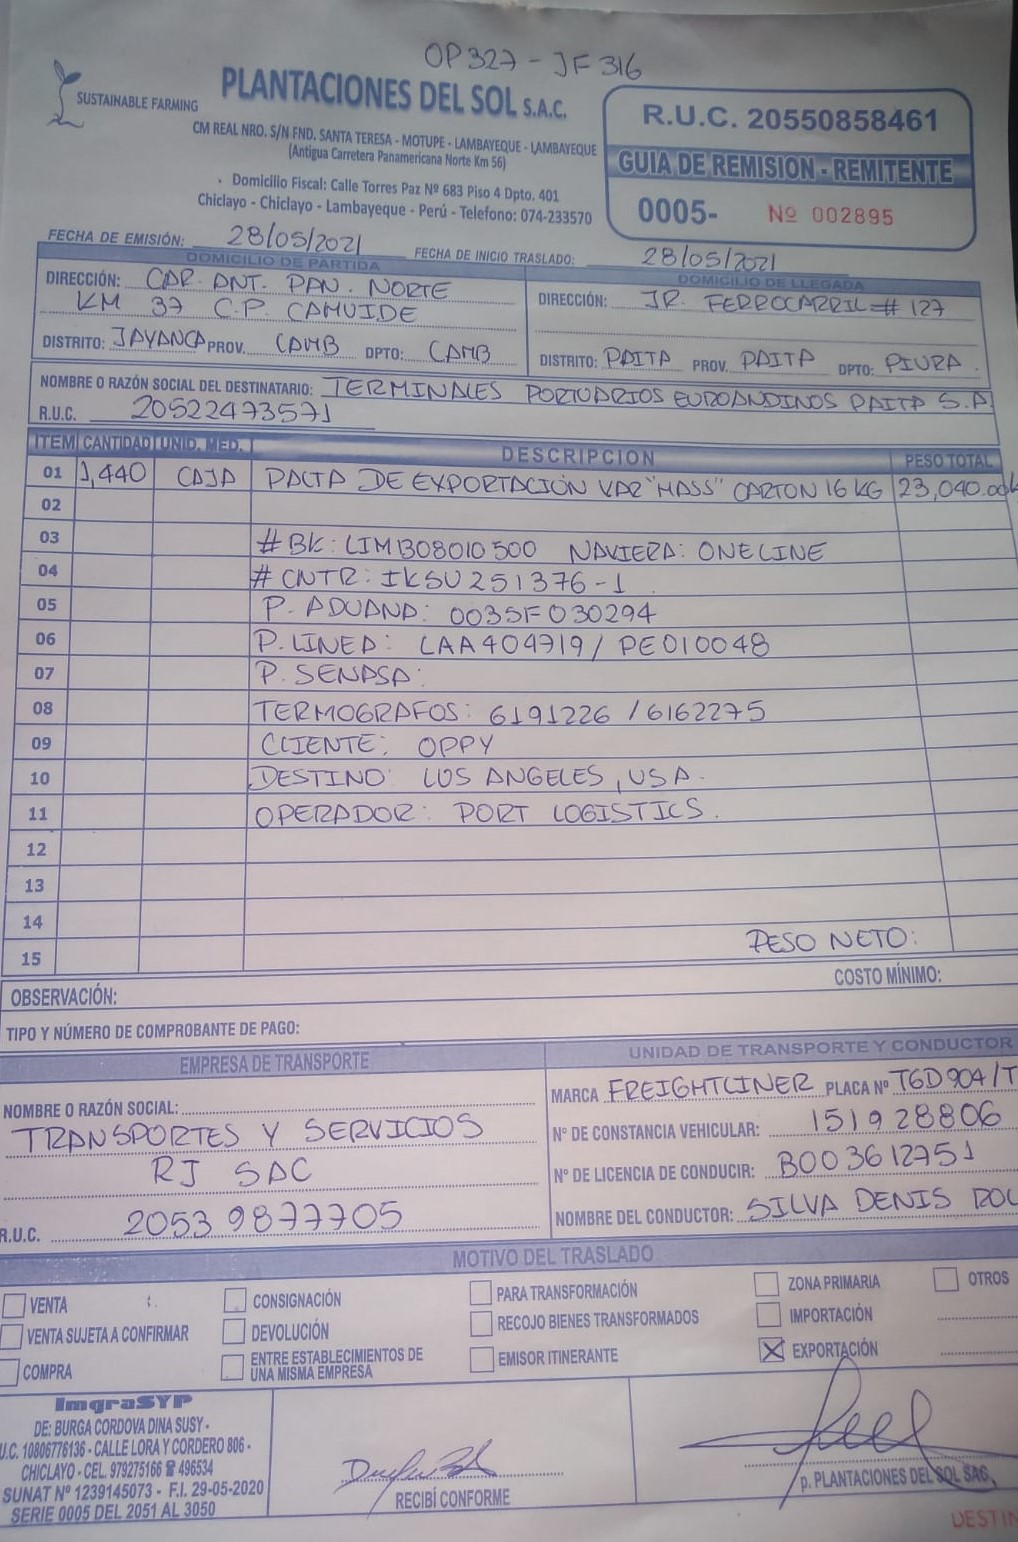 OP327 - JF316
SUSTAINABLE FARMING
PLANTACIONES DEL SOL S.A.C.
CM REAL NRO. S/N FND. SANTA TERESA - MOTUPE - LAMBAYEQUE - LAMBAYEQUE
(Antigua Carretera Panamericana Norte Km 56)
Domicilio Fiscal: Calle Torres Paz Nº 683 Piso 4 Dpto. 401
Chiclayo - Chiclayo - Lambayeque - Perú - Telefono: 074-233570
R.U.C. 20550858461
GUIA DE REMISION - REMITENTE
0005- Nº 002895
FECHA DE EMISIÓN: 28/05/2021 FECHA DE INICIO TRASLADO: 28/05/2021
DOMICILIO DE PARTIDA
DIRECCIÓN: CAR. ANT. PAN. NORTE
KM 37 C.P. CAMUIDE
DISTRITO: JAYANCA PROV. LAMB DPTO: LAMB
DOMICILIO DE LLEGADA
DIRECCIÓN: JR. FERROCARRIL # 127
DISTRITO: PAITA PROV. PAITA DPTO: PIURA.
NOMBRE O RAZÓN SOCIAL DEL DESTINATARIO: TERMINALES PORTUARIOS EUROANDINOS PAITA S.A
R.U.C. 20522473571
ITEM CANTIDAD UNID. MED. DESCRIPCION PESO TOTAL
01 1,440 CAJA PALTA DE EXPORTACIÓN VAR "HASS" CARTON 16 KG 23,040.00k
02
03 # BK: LIMB08010500 NAVIERA: ONE LINE
04 # CNTR: IKSU 251376-1
05 P. ADUANA: 003SF030294
06 P. LINEA: LAA404719 / PE010048
07 P. SENASA:
08 TERMOGRAFOS: 6191226 / 6162275
09 CLIENTE: OPPY
10 DESTINO: LOS ANGELES, USA.
11 OPERADOR: PORT LOGISTICS.
12
13
14
15 PESO NETO:
OBSERVACIÓN: COSTO MÍNIMO:
TIPO Y NÚMERO DE COMPROBANTE DE PAGO:
EMPRESA DE TRANSPORTE
NOMBRE O RAZÓN SOCIAL:
TRANSPORTES Y SERVICIOS
RJ SAC
R.U.C. 20539877705
UNIDAD DE TRANSPORTE Y CONDUCTOR
MARCA FREIGHTLINER PLACA Nº T6D904/T
Nº DE CONSTANCIA VEHICULAR: 151928806
Nº DE LICENCIA DE CONDUCIR: B003612751
NOMBRE DEL CONDUCTOR: SILVA DENIS ROL
MOTIVO DEL TRASLADO
VENTA CONSIGNACIÓN PARA TRANSFORMACIÓN ZONA PRIMARIA OTROS
VENTA SUJETA A CONFIRMAR DEVOLUCIÓN RECOJO BIENES TRANSFORMADOS IMPORTACIÓN
COMPRA ENTRE ESTABLECIMIENTOS DE EMISOR ITINERANTE X EXPORTACIÓN
UNA MISMA EMPRESA
ImgraSYP
DE: BURGA CORDOVA DINA SUSY -
U.C. 10806776136 - CALLE LORA Y CORDERO 806 -
CHICLAYO - CEL. 979275166 ☎ 496534
SUNAT Nº 1239145073 - F.I. 29-05-2020
SERIE 0005 DEL 2051 AL 3050
RECIBÍ CONFORME
p. PLANTACIONES DEL SOL SAC.
DESTIN